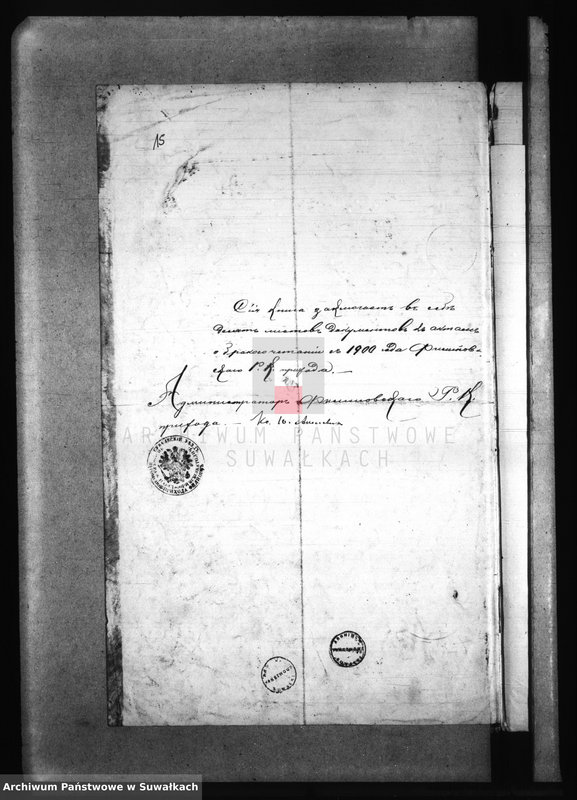 15
Сія книга заключаетъ въ себѣ
девять листовъ документовъ къ актамъ
о бракосочетаніи съ 1900 года Филипов-
скаго Р. К. прихода. —
Администраторъ Филиповскаго Р. К.
прихода Кс.
ARCHIWUM PAŃSTWOWE
W SUWAŁKACH
Archiwum Państwowe w Suwałkach